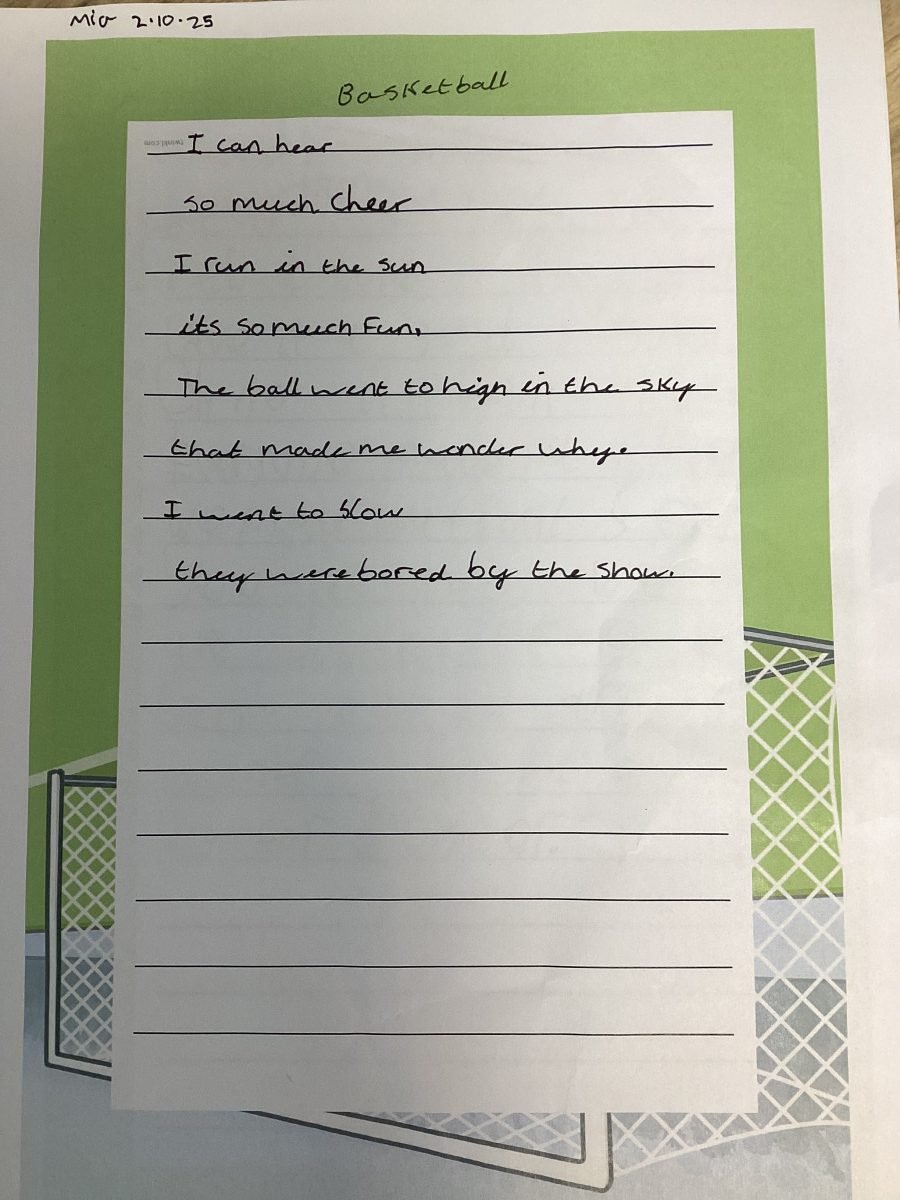 Mia 2.10.25
Basketball
twinkl.com
I can hear
so much Cheer
I run in the sun
its so much Fun,
The ball went to high in the sky
that made me wonder why.
I went to slow
they were bored by the show.